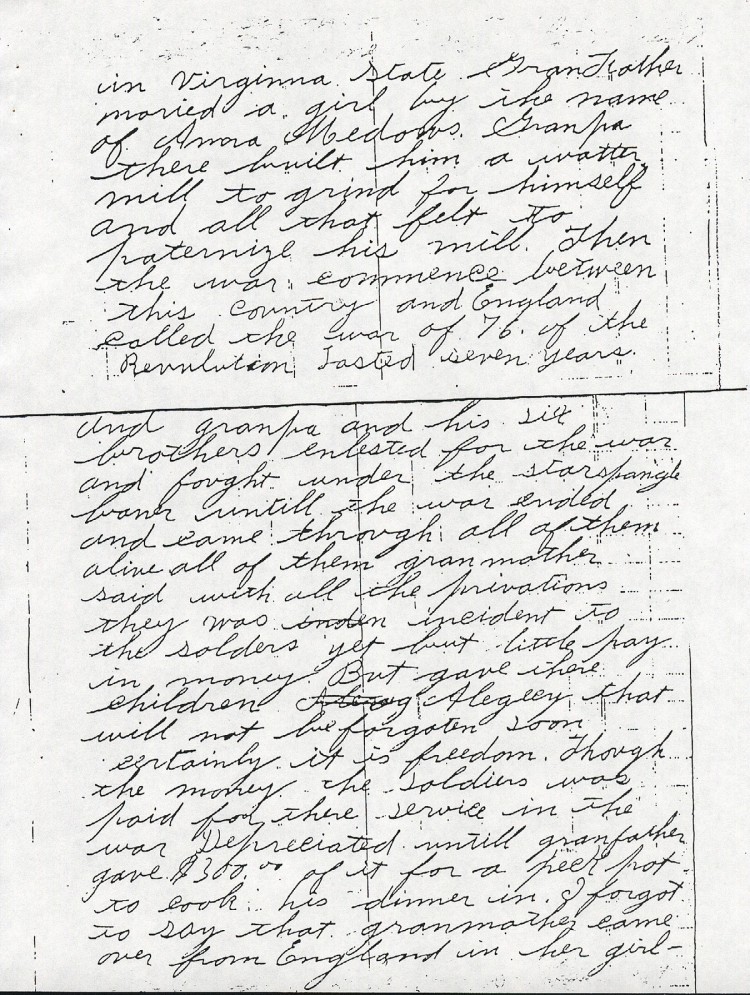 in Virginna State Grandfather
maried a girl by the name
of Amora Medows. Granpa
there built him a watter
mill to grind for himself
and all that felt to
paternize his mill. Then
the war commence between
this country and England
called the war of 76. of the
Revulution lasted seven years.
and granpa and his six
brothers enlested for the war
and fought under the starspangle
banr untill the war ended
and came through all of them
alive all of them granmother
said with all the privations
they was inden incident to
the solders yet but little pay
in money. But gave there
children Alegecy that
will not be forgoten soon
certainly it is freedom. Though
the money the soldiers was
paid for there service in the
war Depreciated untill granfather
gave $300.00 of it for a peck pot
to cook his dinner in. I forgot
to say that granmother came
over from England in her girl-